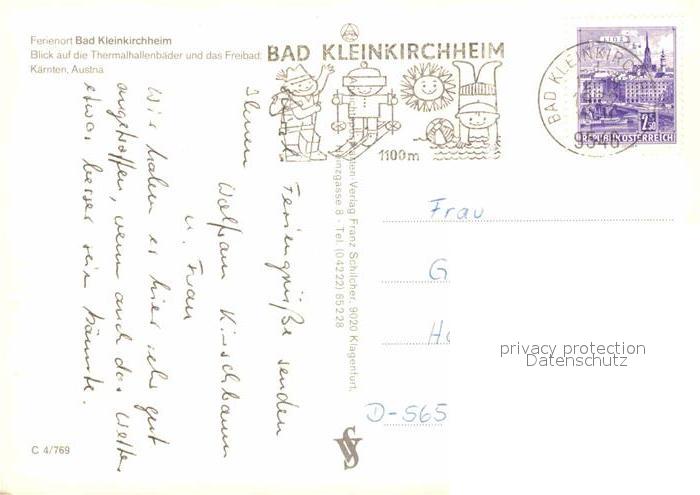 Ferienort Bad Kleinkirchheim
Blick auf die Thermalhallenbäder und das Freibad
Kärnten, Austria
BAD KLEINKIRCHHEIM
1100 m
LINZ
2.50
REPUBLIK ÖSTERREICH
BAD KLEINKIRCH
9546
Feriengrüße senden
Ihnen
Wolfram Kirschbaum
u. Frau
Wir haben es hier sehr gut
angetroffen, wenn auch das Wetter
etwas besser sein könnte.
Karten-Verlag Franz Schilcher, 9020 Klagenfurt,
gasse 8 · Tel. (04222) 85228
Frau
G
D-565
privacy protection
Datenschutz
C 4/769